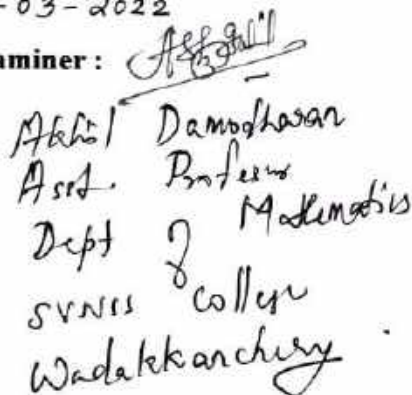 -03-2022
aminer :
Akhil Damodharan
Asst. Professor
Dept of Mathematics
SVNSS College
Wadakkanchery